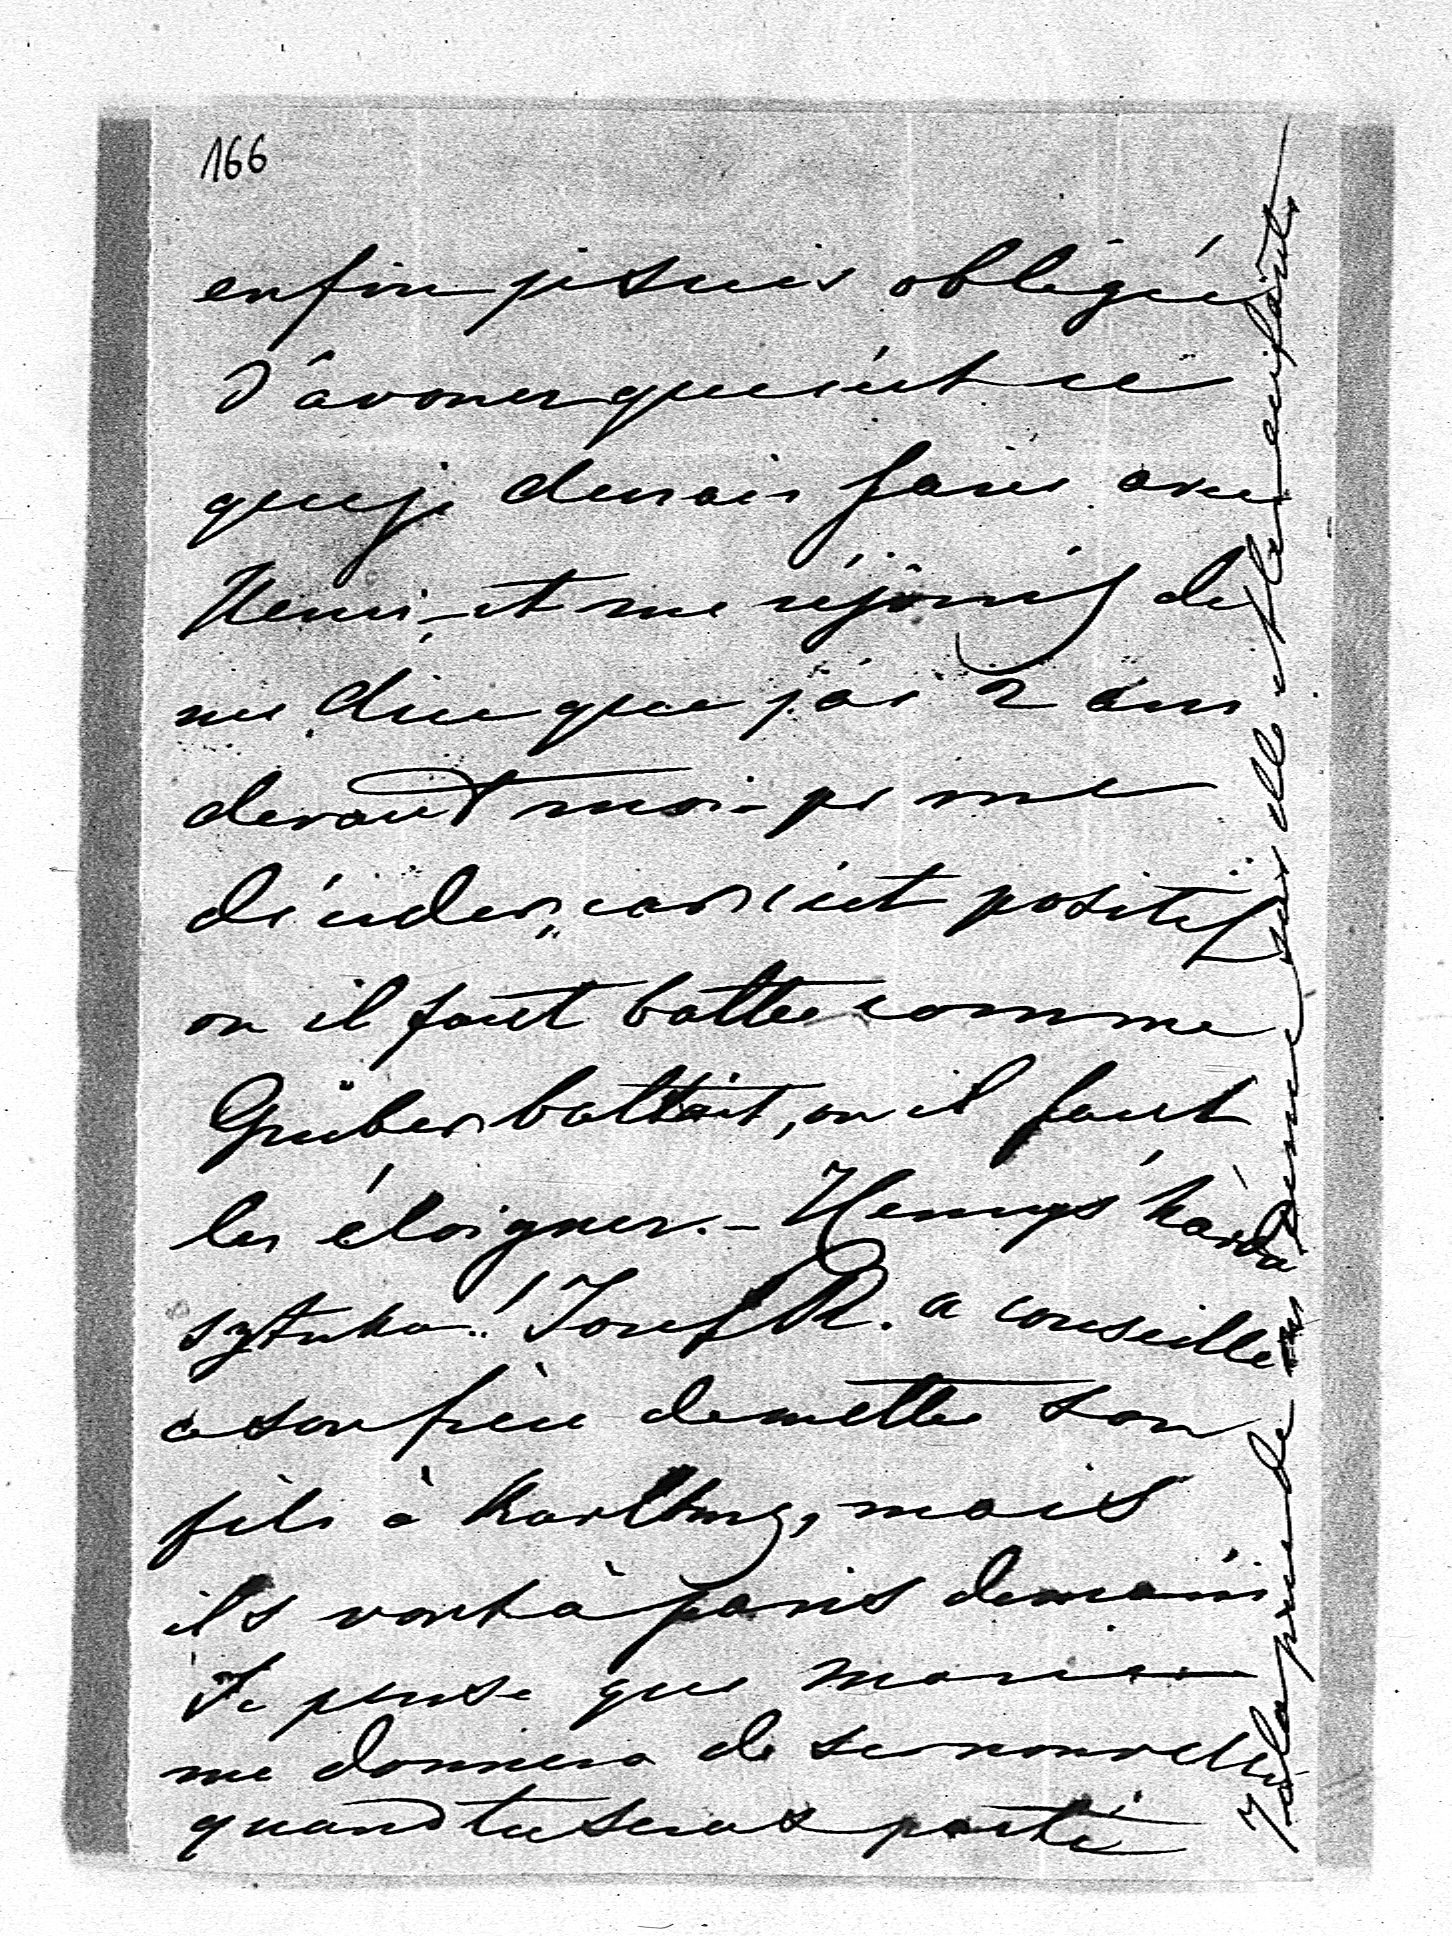 166
enfin je suis obligée
d'avouer que c'est ce
que je devrais faire avec
Henri, et me réjouis de
me dire que j'ai 2 ans
devant moi - pr me
décider, car c'est positif
ou il faut battre comme
Grüber battait, ou il faut
les éloigner. - Henryś twarda
sztuka." Josef R. a conseillé
à son frère de mettre son
fils à Karlburg, mais
ils vont à paris demain
Je pense que Marie
me donnera de ses nouvelles
quand tu seras parti
Je la prie de m'en donner car elle est